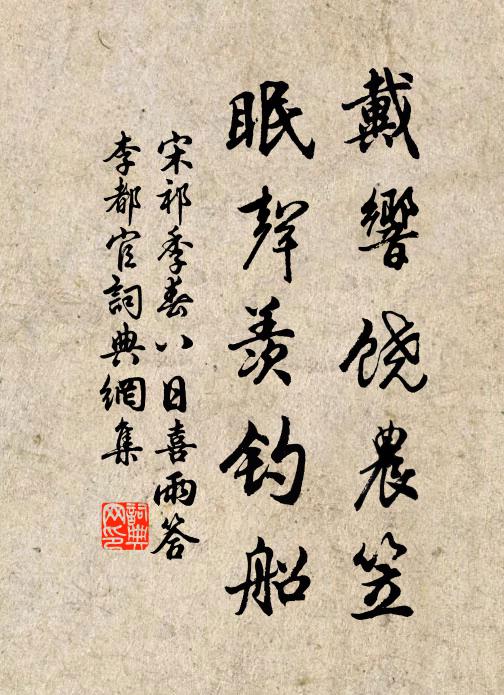 戴響饒農笠
眠聲羨釣船
宋祁季春八日喜雨答
李都官詞典網集
詞典
网印